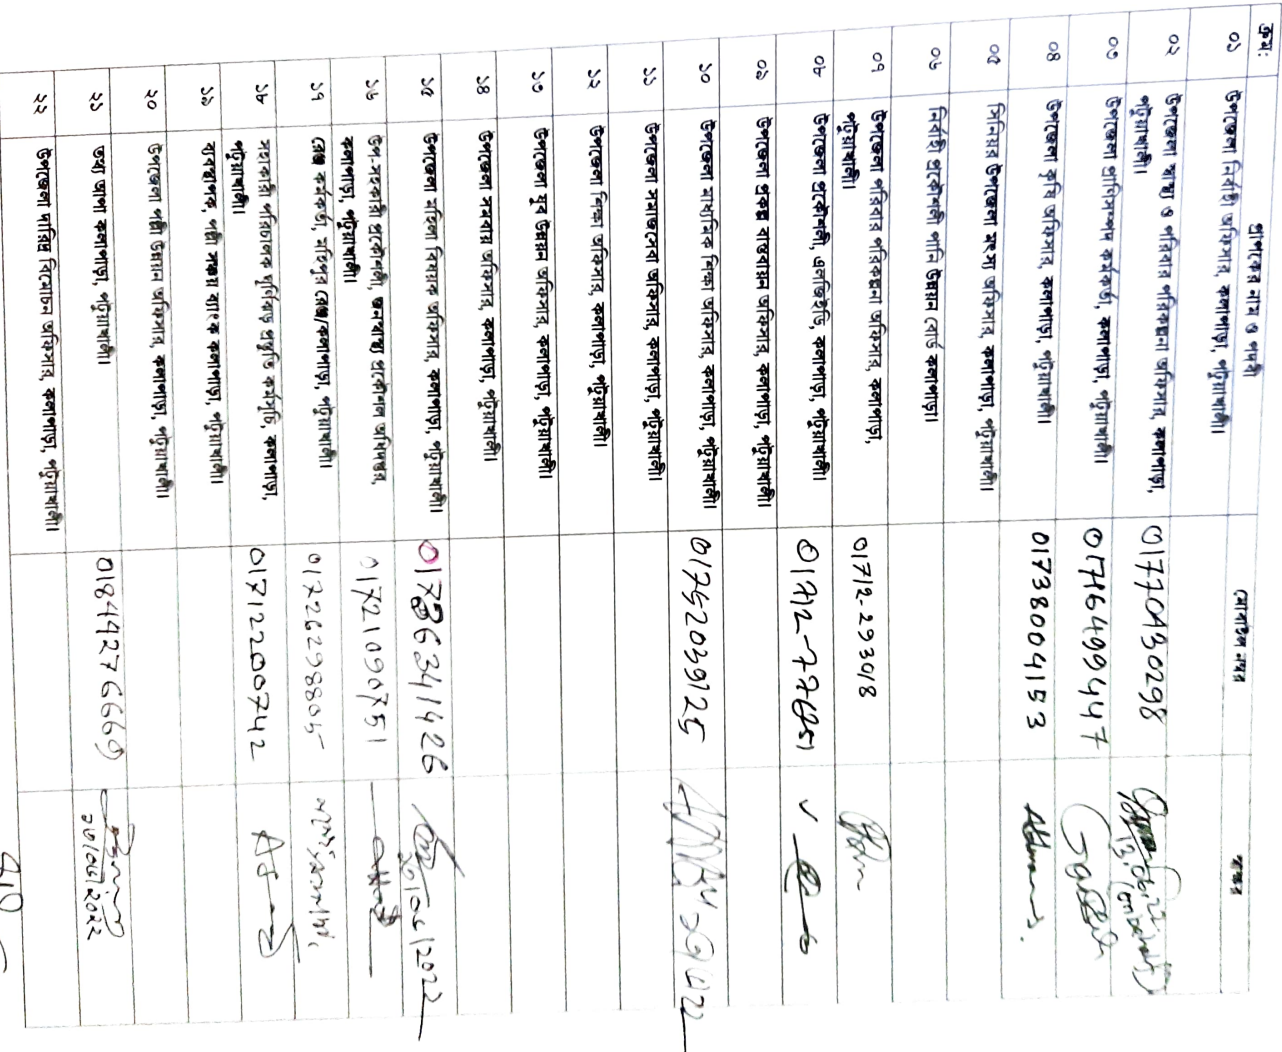 ক্রম: প্রাপকের নাম ও পদবী মোবাইল নম্বর স্বাক্ষর
০১ উপজেলা নির্বাহী অফিসার, কলাপাড়া, পটুয়াখালী।
০২ উপজেলা স্বাস্থ্য ও পরিবার পরিকল্পনা অফিসার, কলাপাড়া, পটুয়াখালী। 01770430298
০৩ উপজেলা প্রাণিসম্পদ কর্মকর্তা, কলাপাড়া, পটুয়াখালী। 01716499447
০৪ উপজেলা কৃষি অফিসার, কলাপাড়া, পটুয়াখালী। 01738004153
০৫ সিনিয়র উপজেলা মৎস্য অফিসার, কলাপাড়া, পটুয়াখালী।
০৬ নির্বাহী প্রকৌশলী পানি উন্নয়ন বোর্ড কলাপাড়া।
০৭ উপজেলা পরিবার পরিকল্পনা অফিসার, কলাপাড়া, পটুয়াখালী। 01712-293018
০৮ উপজেলা প্রকৌশলী, এলজিইডি, কলাপাড়া, পটুয়াখালী।
০৯ উপজেলা প্রকল্প বাস্তবায়ন অফিসার, কলাপাড়া, পটুয়াখালী।
১০ উপজেলা মাধ্যমিক শিক্ষা অফিসার, কলাপাড়া, পটুয়াখালী। 01752039125
১১ উপজেলা সমাজসেবা অফিসার, কলাপাড়া, পটুয়াখালী।
১২ উপজেলা শিক্ষা অফিসার, কলাপাড়া, পটুয়াখালী।
১৩ উপজেলা যুব উন্নয়ন অফিসার, কলাপাড়া, পটুয়াখালী।
১৪ উপজেলা সমবায় অফিসার, কলাপাড়া, পটুয়াখালী।
১৫ উপজেলা মহিলা বিষয়ক অফিসার, কলাপাড়া, পটুয়াখালী।
১৬ উপ-সহকারী প্রকৌশলী, জনস্বাস্থ্য প্রকৌশল অধিদপ্তর, কলাপাড়া, পটুয়াখালী। 01721090751
১৭ রেঞ্জ কর্মকর্তা, মহিপুর রেঞ্জ/কলাপাড়া, পটুয়াখালী। 01726298805
১৮ সহকারী পরিচালক ঘূর্ণিঝড় প্রস্তুতি কর্মসূচি, কলাপাড়া, পটুয়াখালী। 01712200742
১৯ ব্যবস্থাপক, পল্লী সঞ্চয় ব্যাংক কলাপাড়া, পটুয়াখালী।
২০ উপজেলা পল্লী উন্নয়ন অফিসার, কলাপাড়া, পটুয়াখালী।
২১ তথ্য আপা কলাপাড়া, পটুয়াখালী। 01844276669
২২ উপজেলা দারিদ্র বিমোচন অফিসার, কলাপাড়া, পটুয়াখালী।